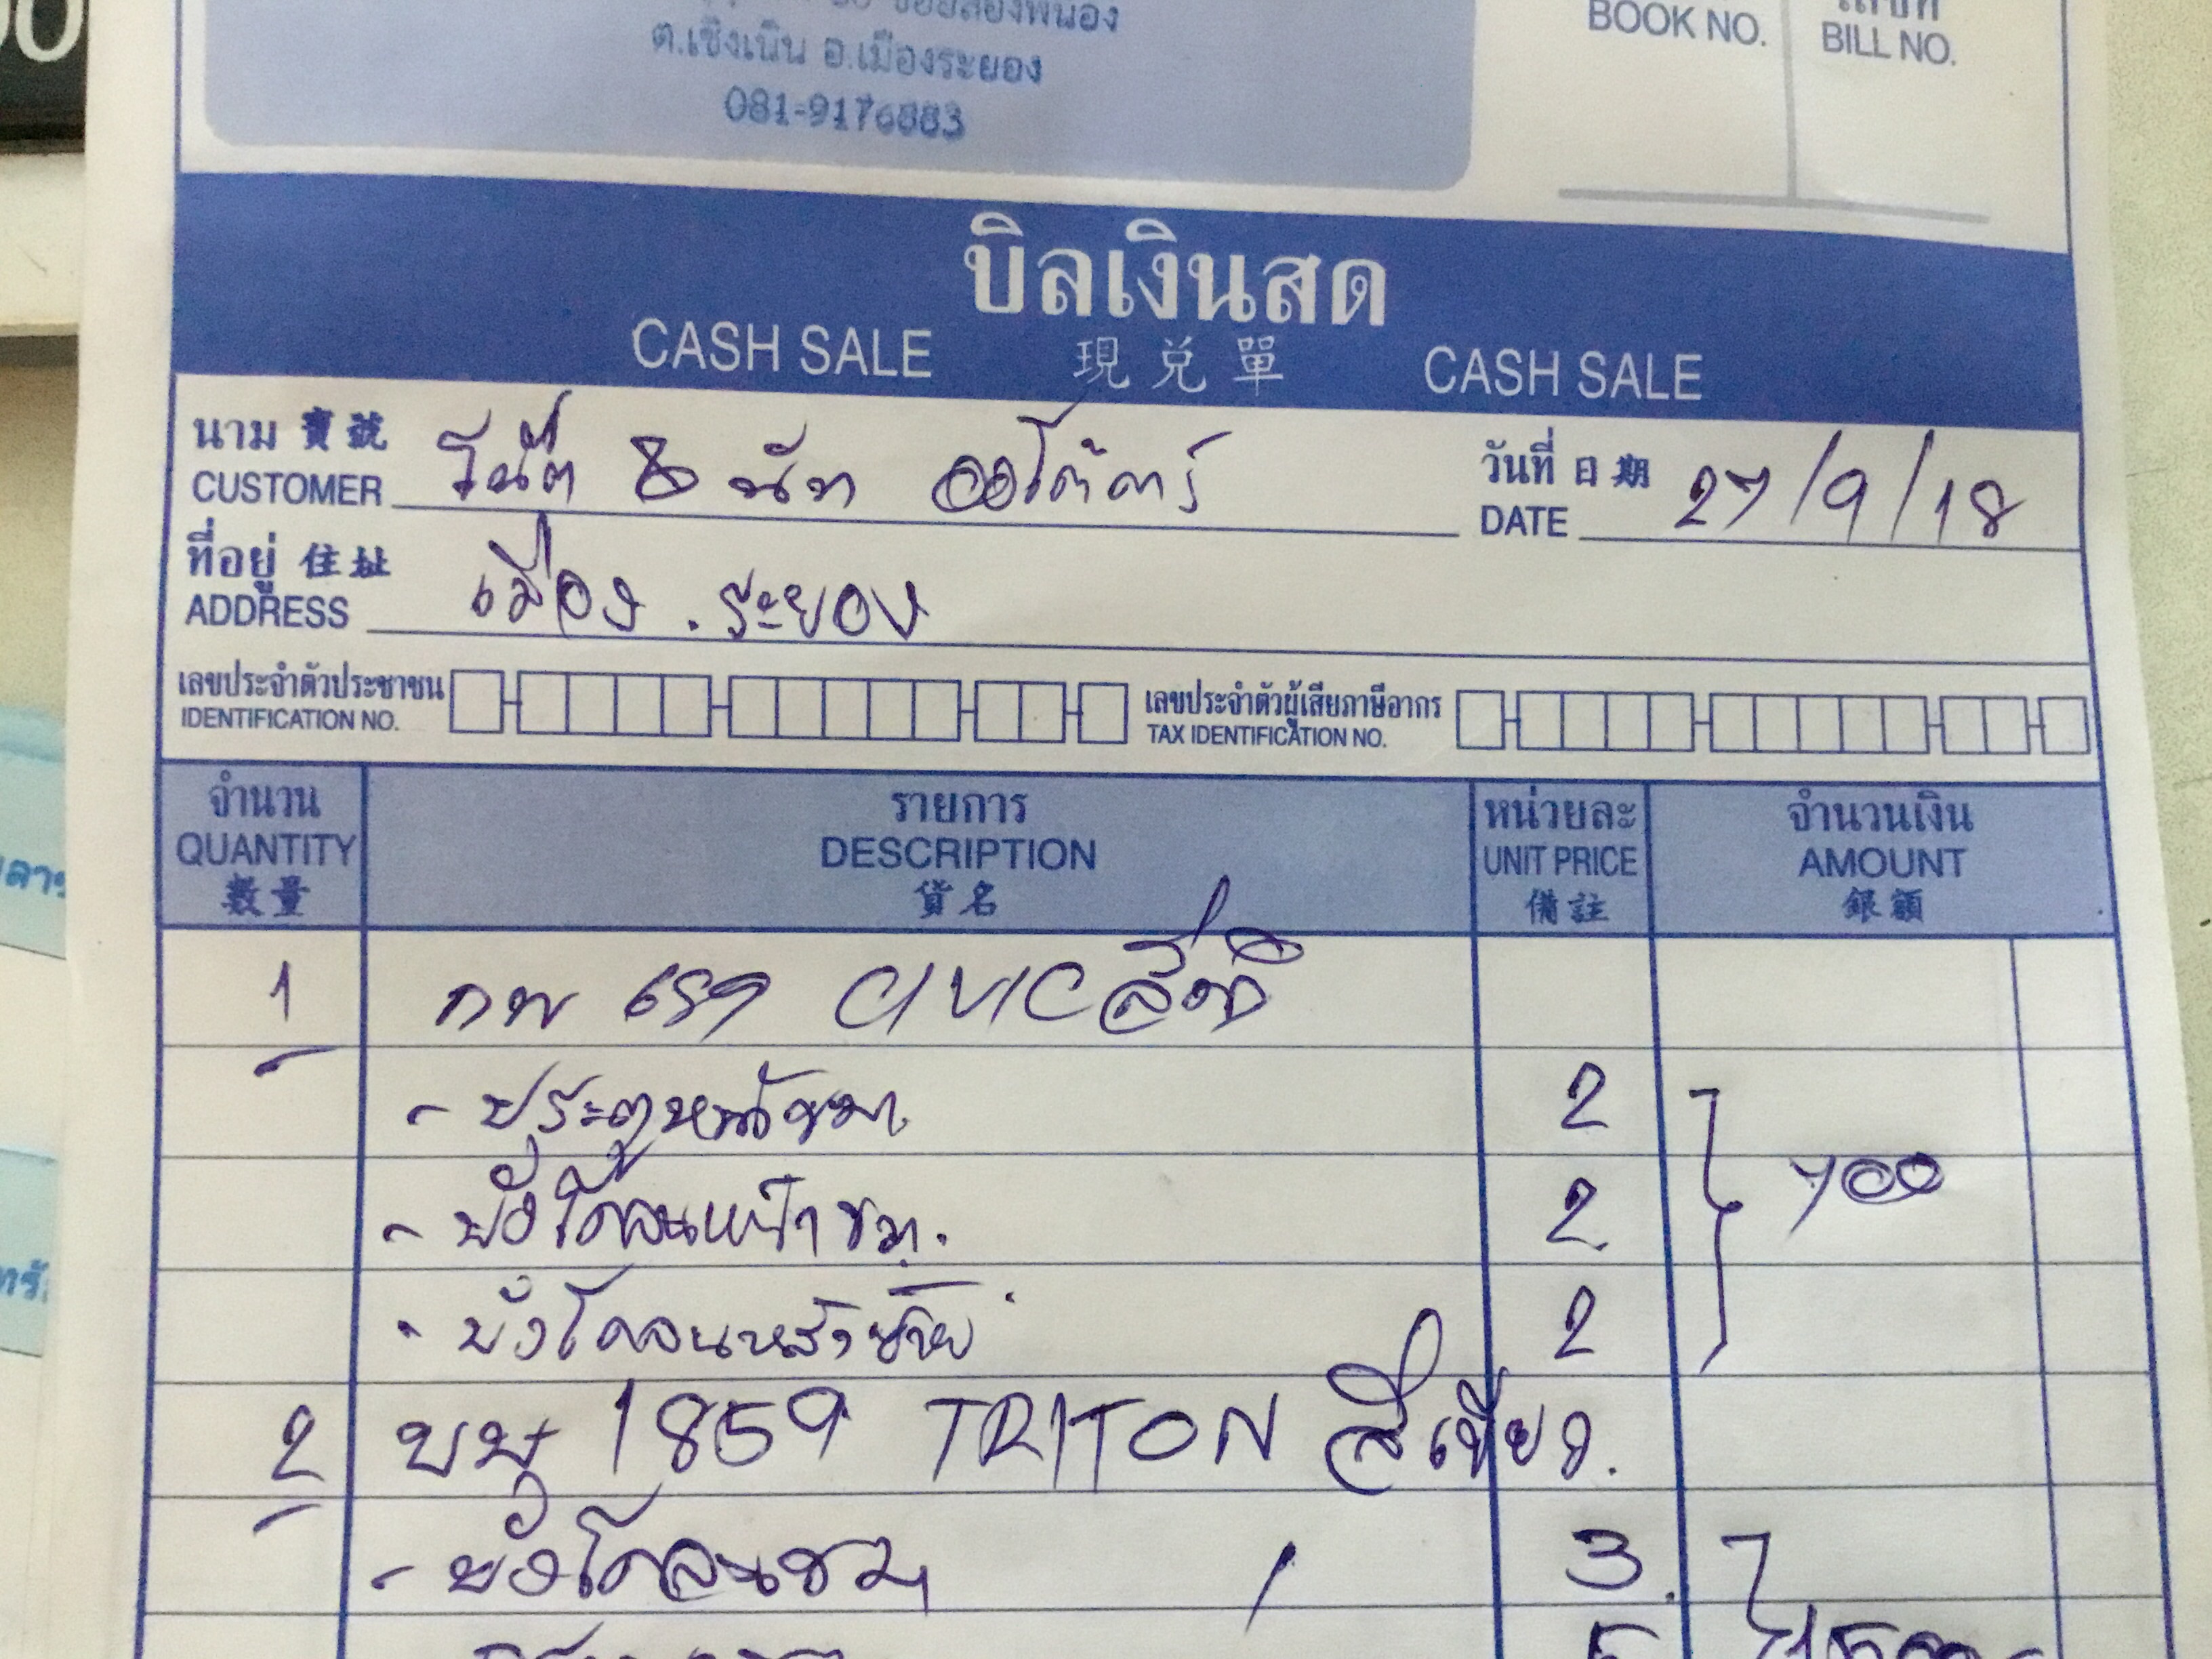 ซอยสองพี่น้อง
ต.เชิงเนิน อ.เมืองระยอง
081-9176883
BOOK NO.
เลขที่
BILL NO.
บิลเงินสด
CASH SALE 現兌單 CASH SALE
นาม 寶號
CUSTOMER
& นัท ออโต้คาร์
วันที่ 日期
DATE 27/9/18
ที่อยู่ 住址
ADDRESS
เมือง . ระยอง
เลขประจำตัวประชาชน
IDENTIFICATION NO.
เลขประจำตัวผู้เสียภาษีอากร
TAX IDENTIFICATION NO.
จำนวน
QUANTITY
數量
รายการ
DESCRIPTION
貨名
หน่วยละ
UNIT PRICE
備註
จำนวนเงิน
AMOUNT
銀額
1 กพ 659 CIVIC สีดำ
- ประตูหน้าขวา 2
- บังโคลนหน้าขวา. 2 700
- บังโคลนหลังซ้าย 2
2 บษ 1859 TRITON สีเขียว.
- บังโคลนขวา / 3.